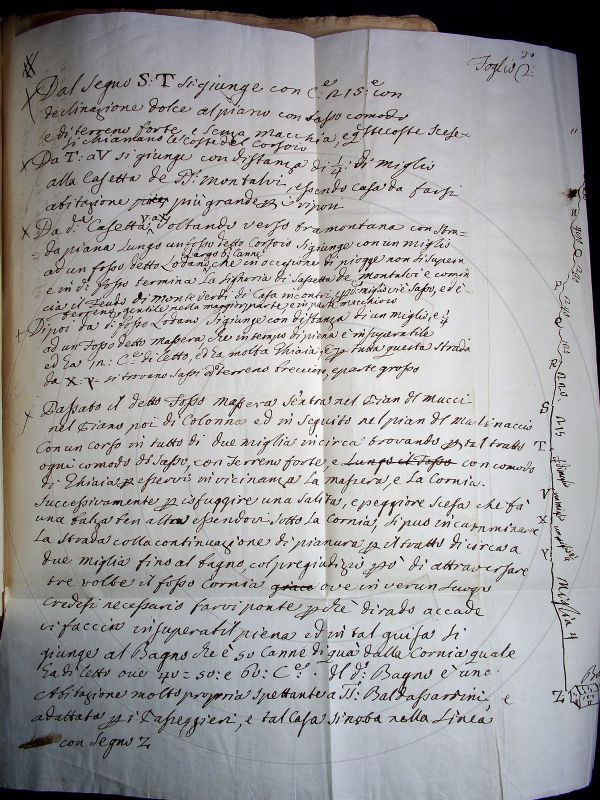 Foglio 2.
Dal Segno S: T si giunge con C.e 1215 con
declinazione dolce al piano con sasso comodo
e di terreno forte, e senza macchia, e qste coste scese
si chiamano le coste del Corsoio
Da T: a V si giunge con distanza di 1/4 di Miglio
alla Casetta de D. montalvi, essendo Casa da farsi
abitazione più grande p riposi
Da da Casetta V: a X Voltando verso tramontana con stra-
da piana Lungo un fosso detto Corsoio si giunge con un miglio
ad un fosso detto Lodano largo di Canne che in occasione di piogge non si supera
e in do fosso termina La Signoria di Sassetta de montalvi e comin
cia il feudo di monte Verdi, di Casa incontri, p miglio vi è Sasso, ed è
terreno gentile nella maggior parte, e in parte macchioso
Di poi da do fosso Lodano si giunge con distanza d'un miglio, e 1/4
ad un fosso detto massera, che in tempo di piena è insuperabile
ed ha in: C.e di letto, ed ha molta Ghiaia, e p tutta questa strada
da X: Y: si trovano sassi di terreno breccino, e parte grosso
Passato il detto fosso massera s'entra nel Pian dl mucci
nel Piano poi di Colonna ed in seguito nel pian dl mulinaccio
Con un corso in tutto di due miglia incirca trovando p tal tratto
ogni comodo di sasso, con terreno forte, e Lungo il fosso con comodo
di Ghiaia p esservi in vicinanza La masiera, e La Cornia.
Successivamente p isfuggire una salita, e peggiore scesa che fà
una balza ben alta essendovi sotto La Cornia, si può incamminare
La strada colla continuazione di pianura p il tratto di circa a
due miglia fino al bagno, col pregiudizio pò di attraversare
tre volte il fosso Cornia ove in verun Luogo
credesi necessario farvi ponte p chè di rado accade
vi faccia insuperabil piena ed in tal guisa si
giunge al Bagno che è 50 Canne di quà dalla Cornia quale
ha di letto ove 40= 50: e 60: C.e. Il do Bagno è una
Abitazione molto propria spettante a SS: Baldassarrini, e
adattata p i Passeggieri, e tal Casa si trova nella Linea
con Segno Z
S
1215
T
V
X
Y
Miglia 4
Z